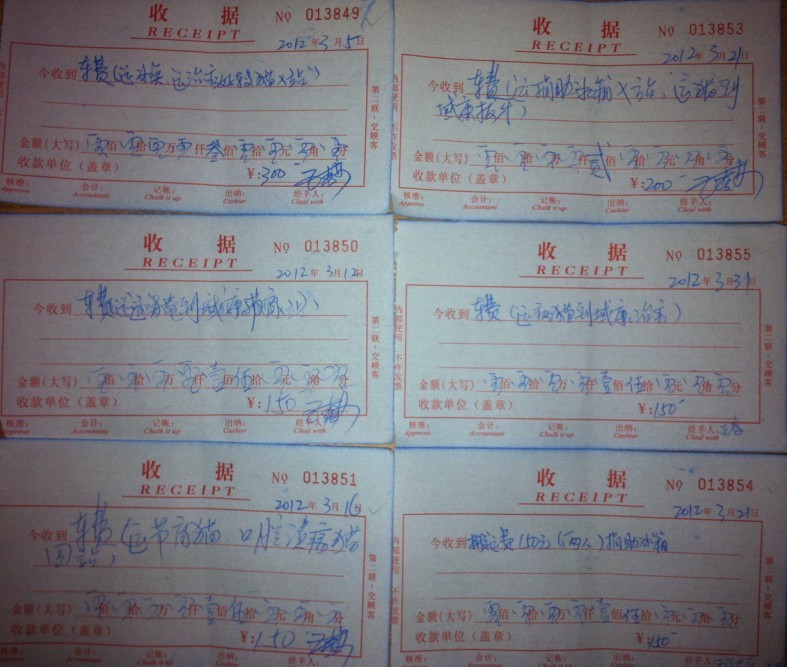 收 据
RECEIPT
№ 013849
2012年3月5日
今收到 车费
第二联:交顾客
金额(大写) 零佰零拾零万零仟叁佰零拾零元零角零分
收款单位(盖章)
¥:300
核准: 会计: 记帐: 出纳: 经手人:
Approve Accountant Chalk it up Cashier Cleal with
收 据
RECEIPT
№ 013853
2012年3月21日
今收到 车费(运捐助冰箱
内部使用 不作发票
第二联:交顾客
金额(大写) 零佰零拾零万零仟贰佰零拾零元零角零分
收款单位(盖章)
¥:200
核准: 会计: 记帐: 出纳: 经手人:
Approve Accountant Chalk it up Cashier Cleal with
收 据
RECEIPT
№ 013850
2012年3月12日
今收到 车费
第二联:交顾客
金额(大写) 零佰零拾零万零仟壹佰伍拾零元零角零分
收款单位(盖章)
¥:150
核准: 会计: 记帐: 出纳: 经手人:
Approve Accountant Chalk it up Cashier Cleal with
收 据
RECEIPT
№ 013855
2012年3月31日
今收到 车费
内部使用 不作发票
第二联:交顾客
金额(大写) 零佰零拾零万零仟壹佰伍拾零元零角零分
收款单位(盖章)
¥:150
核准: 会计: 记帐: 出纳: 经手人:
Approve Accountant Chalk it up Cashier Cleal with
收 据
RECEIPT
№ 013851
2012年3月16日
今收到 车费(包节育猫、口腔溃疡猫
回站)
第二联:交顾客
金额(大写) 零佰零拾零万零仟壹佰伍拾零元零角零分
收款单位(盖章)
¥:150
收 据
RECEIPT
№ 013854
2012年3月21日
今收到 搬运费150元(两人)捐助冰箱
内部使用 不作发票
第二联:交顾客
金额(大写) 零佰零拾零万零仟壹佰伍拾零元零角零分
收款单位(盖章)
¥:150